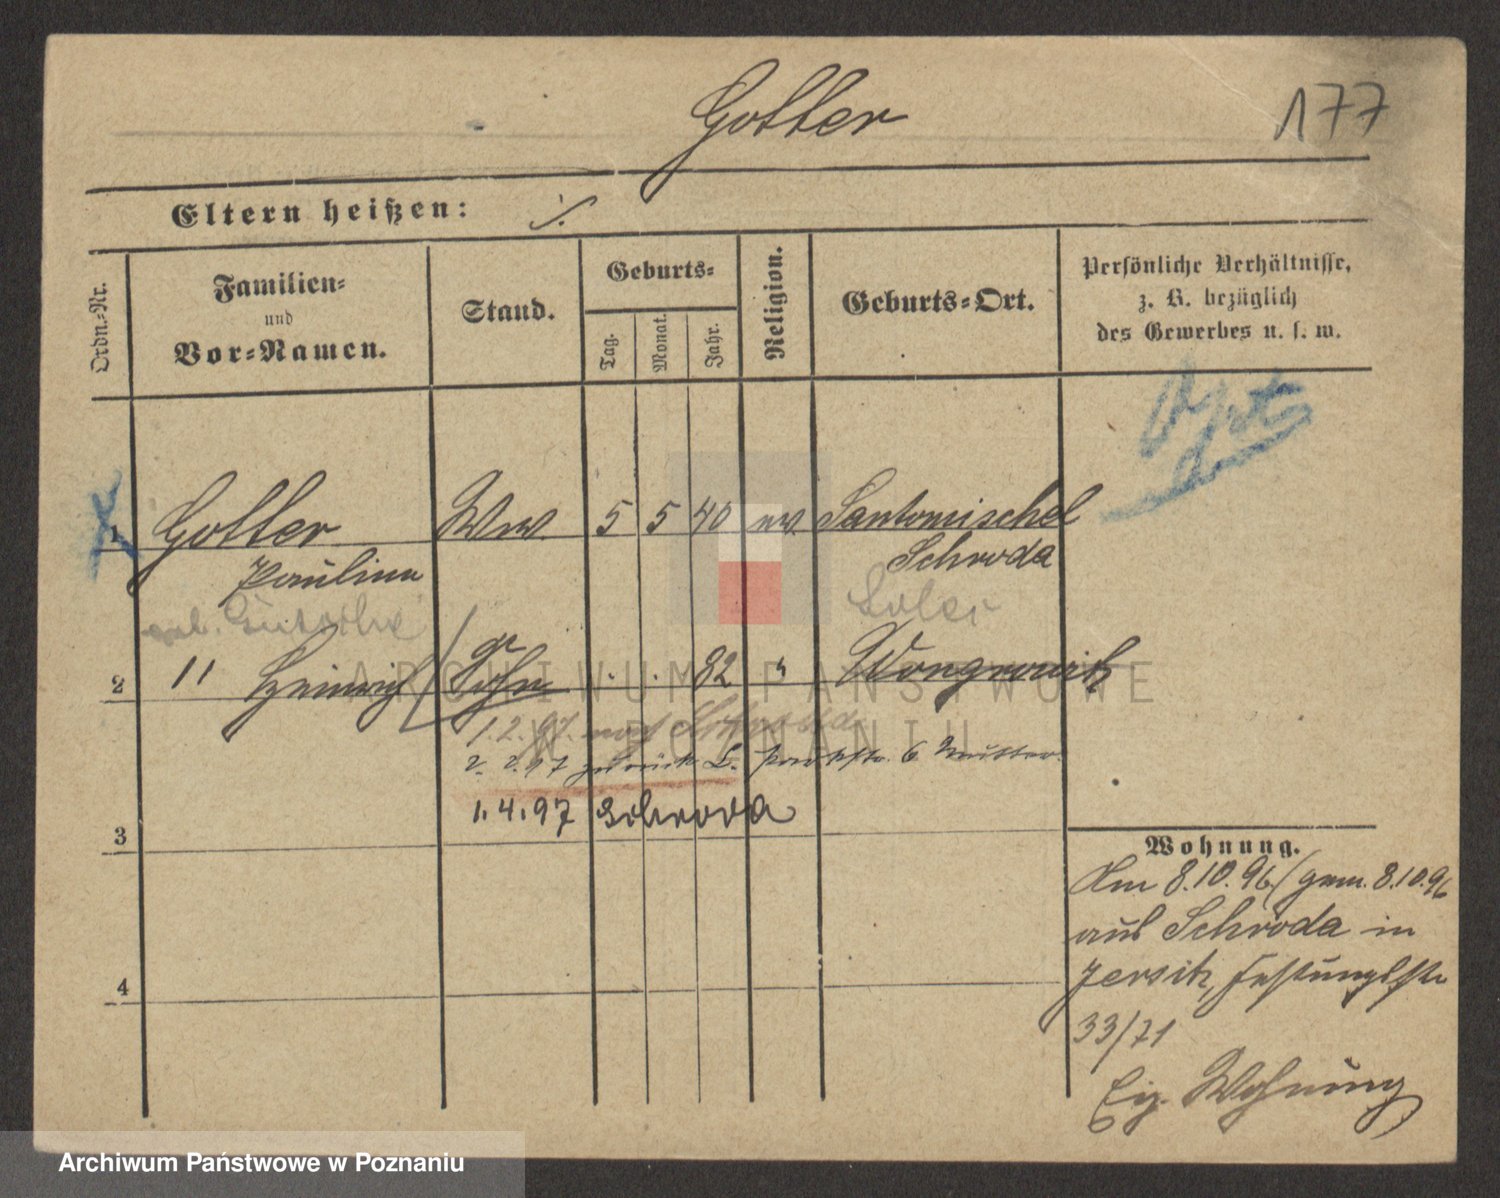 Gotter
177
Eltern heißen: ./.
Ordn.-Nr.
Familien-
und
Vor-Namen.
Stand.
Geburts-
Tag.
Monat.
Jahr.
Religion.
Geburts-Ort.
Persönliche Verhältnisse,
z. B. bezüglich
des Gewerbes u. s. w.
1 Gotter Wwe 5 5 40 ev Santomischel
Pauline Schroda
geb.
2 " Heinrich Sohn . . 82 " Wongrowitz
1.2.97. nach Schroda
2. 2. 97 zurück Parkstr. 6 Mutter.
1.4.97 Schroda
3
4
Wohnung.
Am 8.10.96/gem. 8.10.96
aus Schroda in
Jersitz, Festungsstr
33/71
Eig. Wohnung
ARCHIWUM PAŃSTWOWE
W POZNANIU
Archiwum Państwowe w Poznaniu